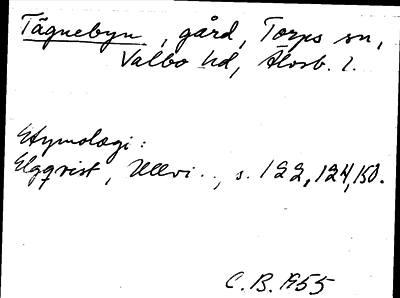 Tägnebyn, gård, Torps sn,
Valbo hd, Älvsb. l.
Etymologi:
Elgqvist, Ullvi.., s. 122, 124, 150.
C.B. 1955